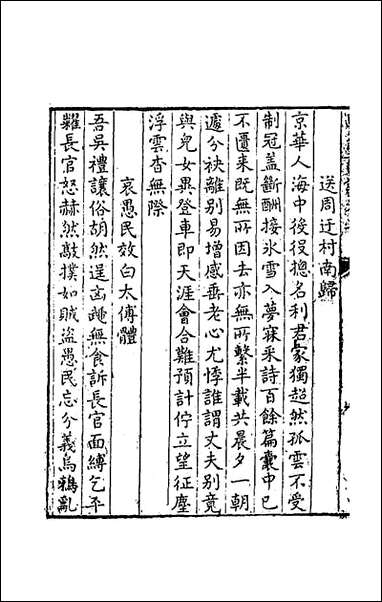 送周迂村南歸
京華人海中後役摠名利君家獨超然孤雲不受
制冠盖斷酬接氷雪入夢寐采詩百餘篇囊中已
不匱来既無所因去亦無所繫半載共晨夕一朝
遽分袂離别易增感垂老心尤悸誰謂丈夫别竟
與兒女異登車即天涯會合難預計佇立望征塵
浮雲杳無際
哀愚民效白太傅體
吾吳禮讓俗胡然逞凶 無食訴長官面縛乞平
糶長官怒赫然敲撲如賊盗愚民忘分義烏鴉亂